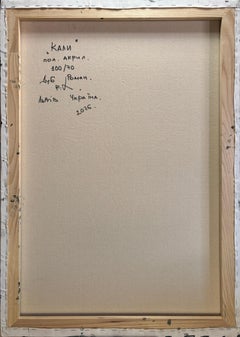 „Кали"
пол. акрил.
100/70
Дуб Роман.
Львів Україна.
2026.